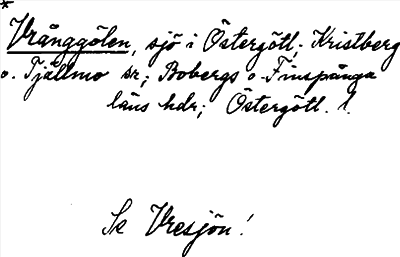 *
Vrånggölen, sjö i Östergötl; Kristberg
o. Tjällmo sr; Bobergs o. Finspånga
läns hdr; Östergötl. l.
Se Vresjön!